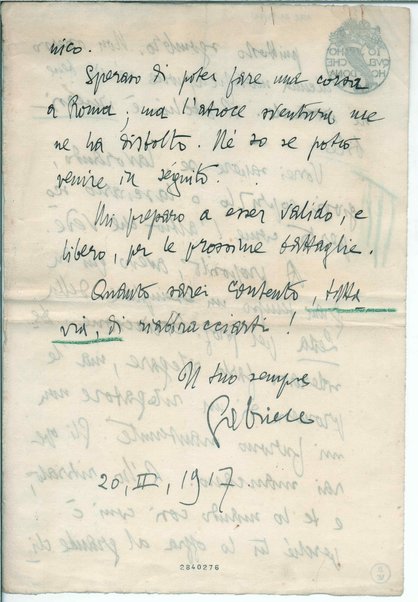 nico.
Speravo di poter fare una corsa
a Roma; ma l'atroce sventura me
ne ha distolto. Né so se potrò
venire in seguito.
Mi preparo a esser valido, e
libero, per le prossime battaglie.
Quanto sarei contento, tutta
via, di riabbracciarti!
Il tuo sempre
Gabriele
20, II, 1917.
2840276